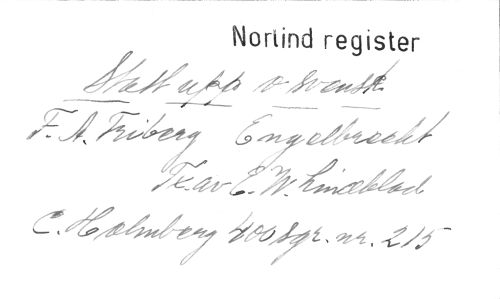 Norlind register
Statt upp o svensk
F. A. Friberg Engelbrecht
Tr. av E. W. Lindblad
C. Holmberg 400 sgr. nr. 215